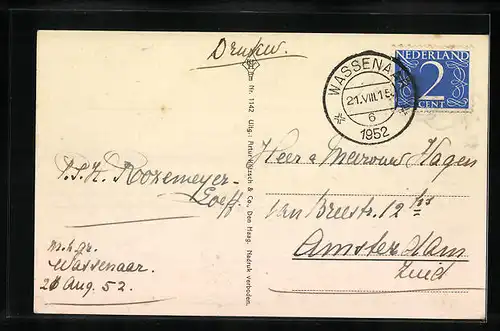 Drukw.
NEDERLAND
2
CENT
WASSENAAR
21.VIII.15
6
1952
P.S.H. Roozemeyer-
Loeff.
m.h.gr.
Wassenaar.
20 Aug. 52.
Nr. 1142 Uitg.: Artur Klitzsch & Co., Den Haag. Nadruk verboden.
Heer & Mevrouw Hagen
van Breestr. 12 bis
Amsterdam
Zuid